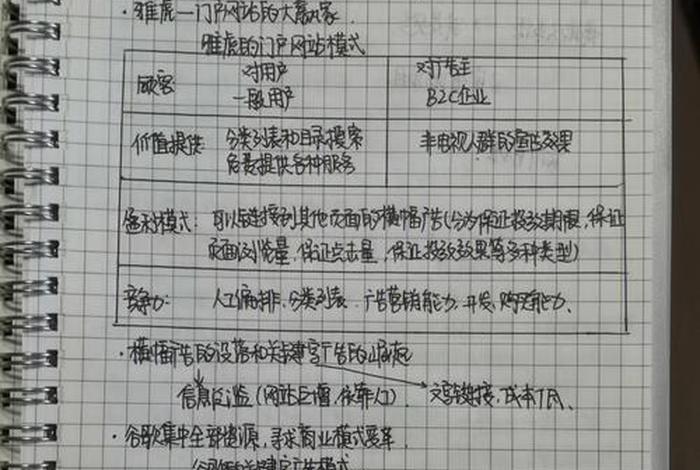 ·雅虎—门户网站的大赢家
雅虎的门户网站模式
顾客 对用户 对广告主
一般用户 B2C企业
价值提供: 分类列表和目录搜索 非电视人群的宣传效果
免费提供各种服务
盈利模式: 可以链接到其他页面的横幅广告(分为保证投放期限,保证
页面浏览量,保证点击量,保证投放效果等多种类型)
竞争力: 人工编排、分类列表、广告营销能力、开发、购买能力、
·横幅广告的没落和关键字广告的崛起
信息泛滥(网站巨增,依靠人工) 文字链接,成本低、
·谷歌集中全部资源,寻求商业模式变革
谷歌的关键字广告模式